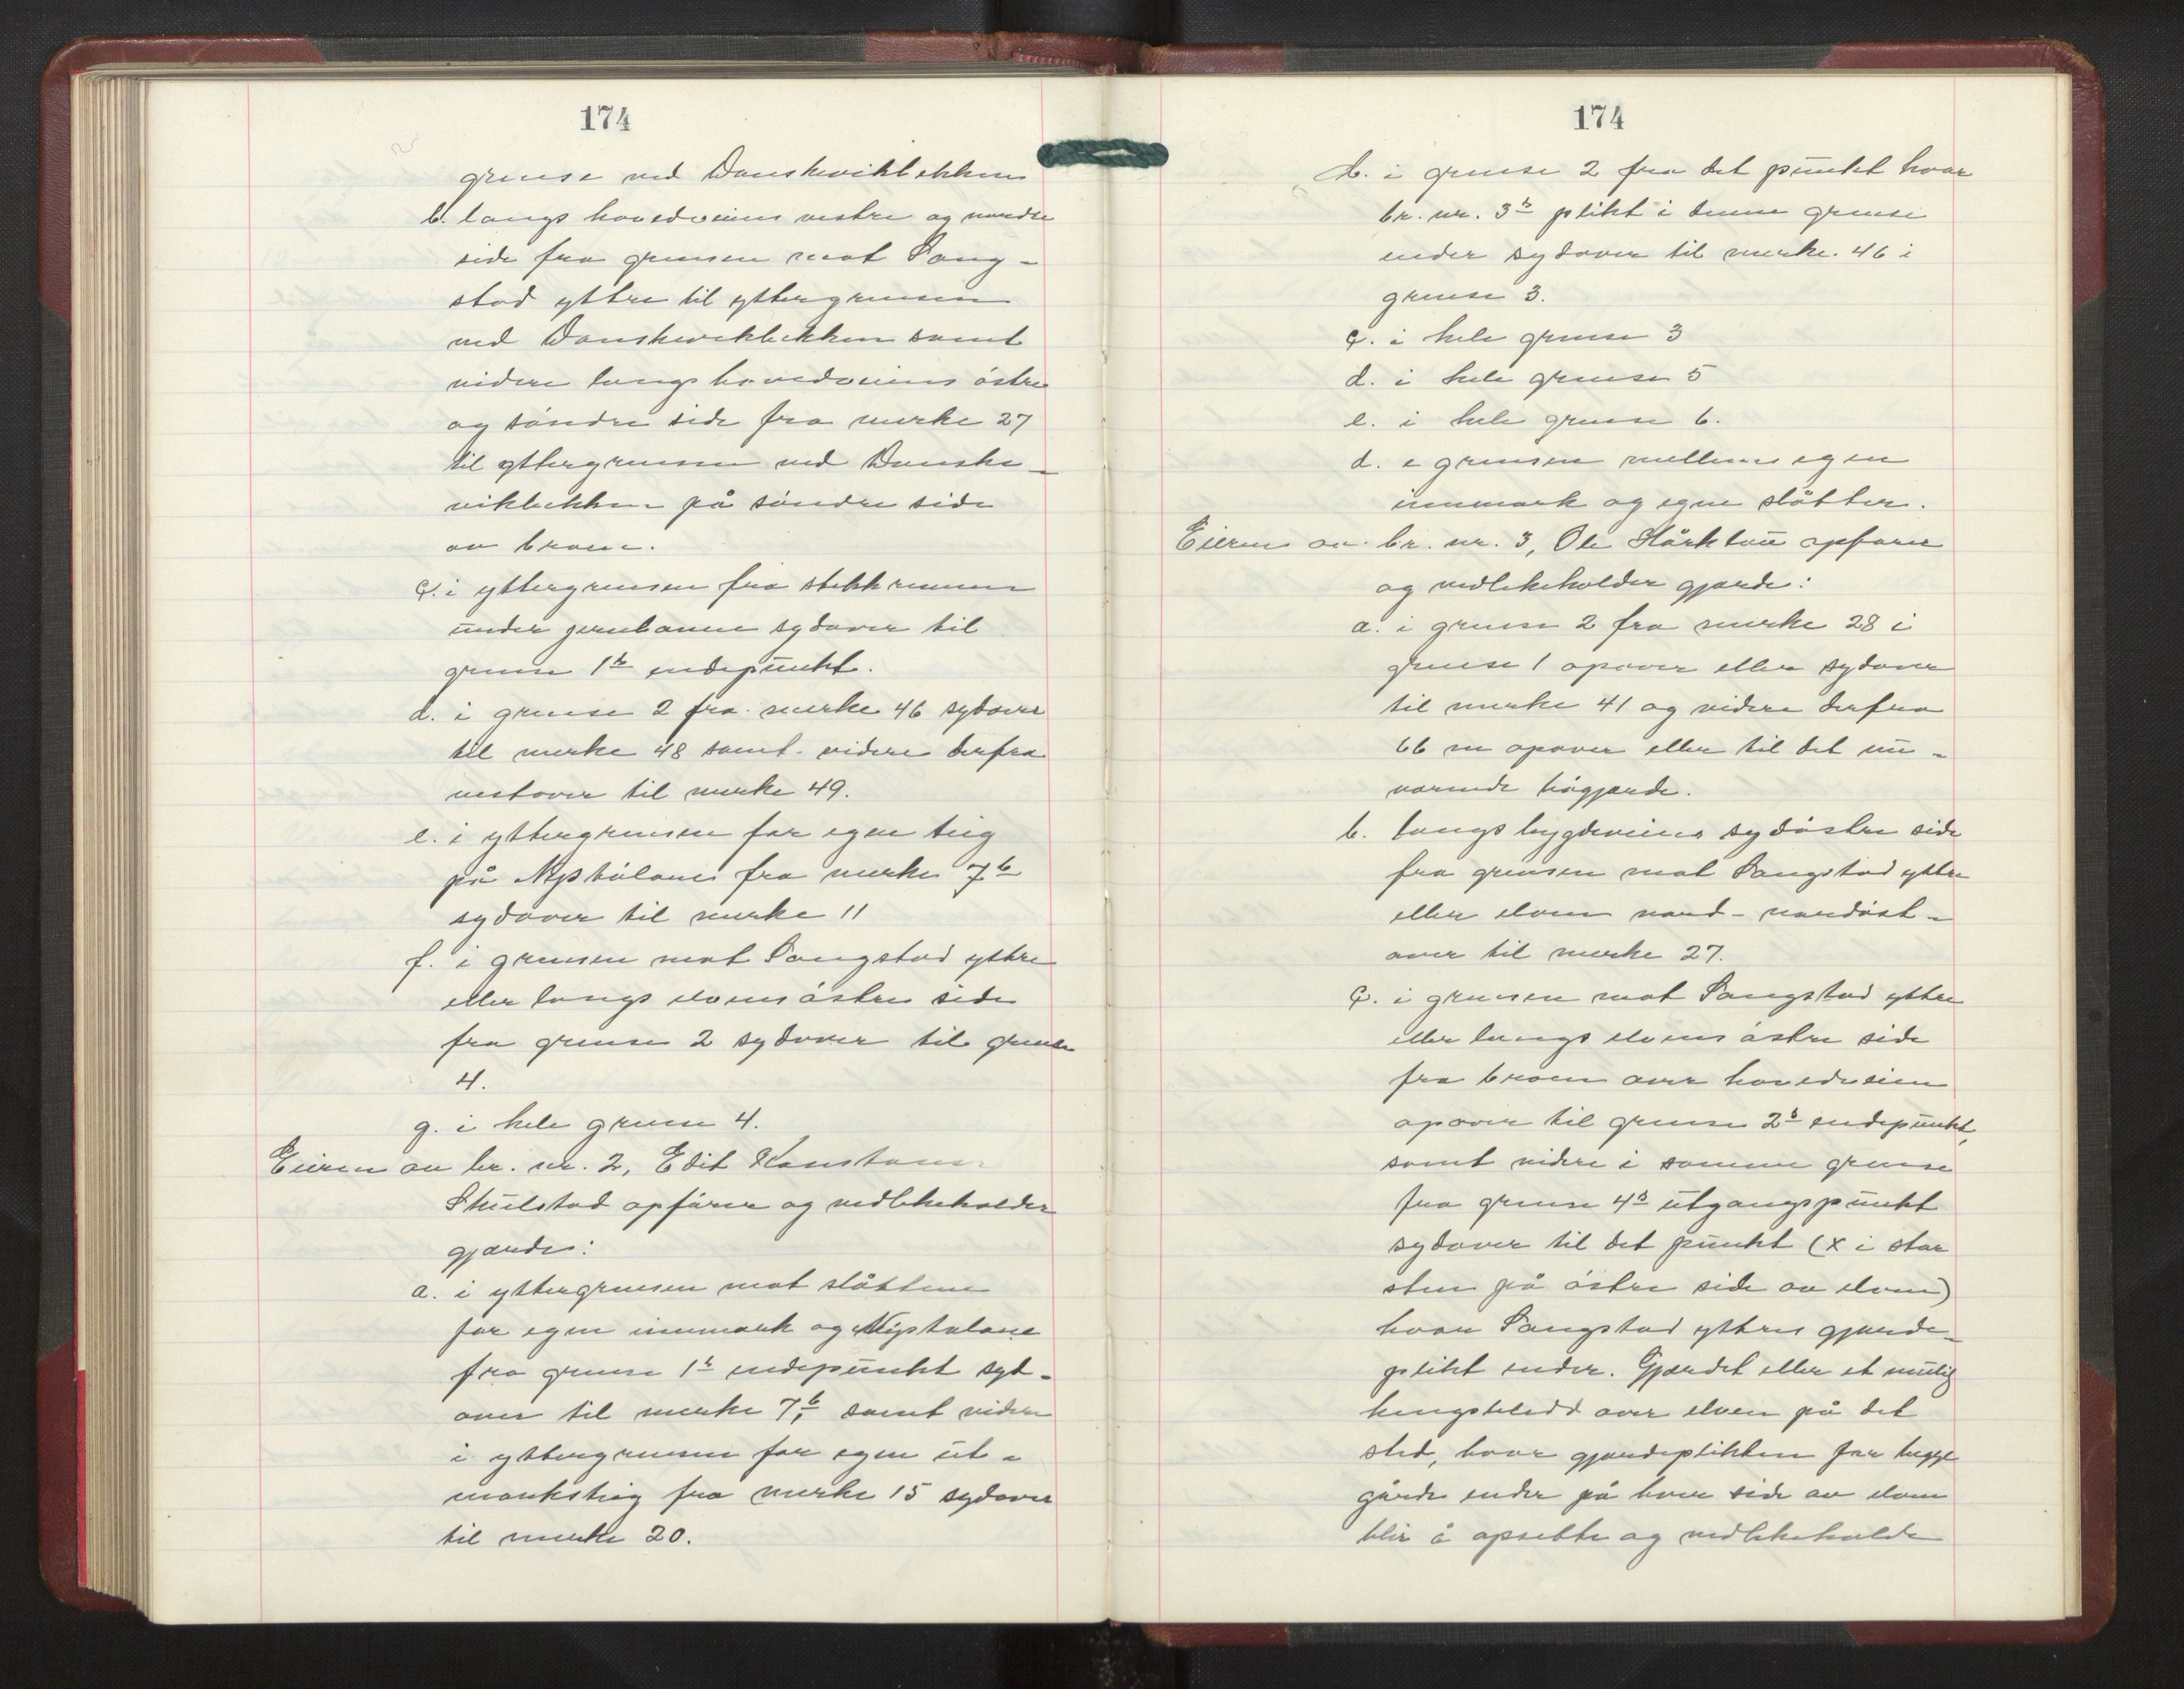 174
grense ved Danskevikbekken
b. langs hovedveiens vestre og nordre
side fra grensen mot Sang-
stad yttre til yttergrensen
ved Danskevikbekken samt
videre langs hovedveiens østre
og søndre side fra merke 27
til yttergrensen ved Danske-
vikbekken på søndre side
av broen.
c. i yttergrensen fra stikkrennen
under jernbanen sydover til
grense 1s endepunkt.
d. i grense 2 fra merke 46 sydover
til merke 48 samt videre derfra
vestover til merke 49.
e. i yttergrensen for egen teig
på fra merke 7b
sydover til merke 11
f. i grensen mot Sangstad yttre
eller langs elvens østre side
fra grense 2 sydover til grense
4.
g. i hele grense 4.
Eieren av br. nr. 2, Edit Konstanse
Skulstad opfører og vedlikeholder
gjerde:
a. i yttergrensen mot slåttene
for egen innmark og
fra grense 1s endepunkt syd-
over til merke 7b, samt videre
i yttergrensen for egen ut-
marksteig fra merke 15 sydover
til merke 20.
174
b. i grense 2 fra det punkt hvor
br. nr. 3s plikt i denne grense
ender sydover til merke 46 i
grense 3.
c. i hele grense 3
d. i hele grense 5
e. i hele grense 6.
d. i grensen mellem egen
innmark og egne slåtter.
Eieren av br. nr. 3, Ole opfører
og vedlikeholder gjerde:
a. i grense 2 fra merke 28 i
grense 1 opover eller sydover
til merke 41 og videre derfra
66 m opover eller til det nu-
værende
b. langs bygdeveiens sydøstre side
fra grensen mot Sangstad yttre
eller elven nord-nordøst-
over til merke 27.
c. i grensen mot Sangstad yttre
eller langs elvens østre side
fra broen over hovedveien
opover til grense 2s endepunkt,
samt videre i samme grense
fra grense 4s utgangspunkt
sydover til det punkt (x i stor
sten på østre side av elven)
hvor Sangstad yttres gjerde-
plikt ender. Gjerdet eller et mulig
hengsteledd over elven på det
sted, hvor gjerdeplikten for begge
gårde ender på hver side av elven
blir å opsette og vedlikeholde